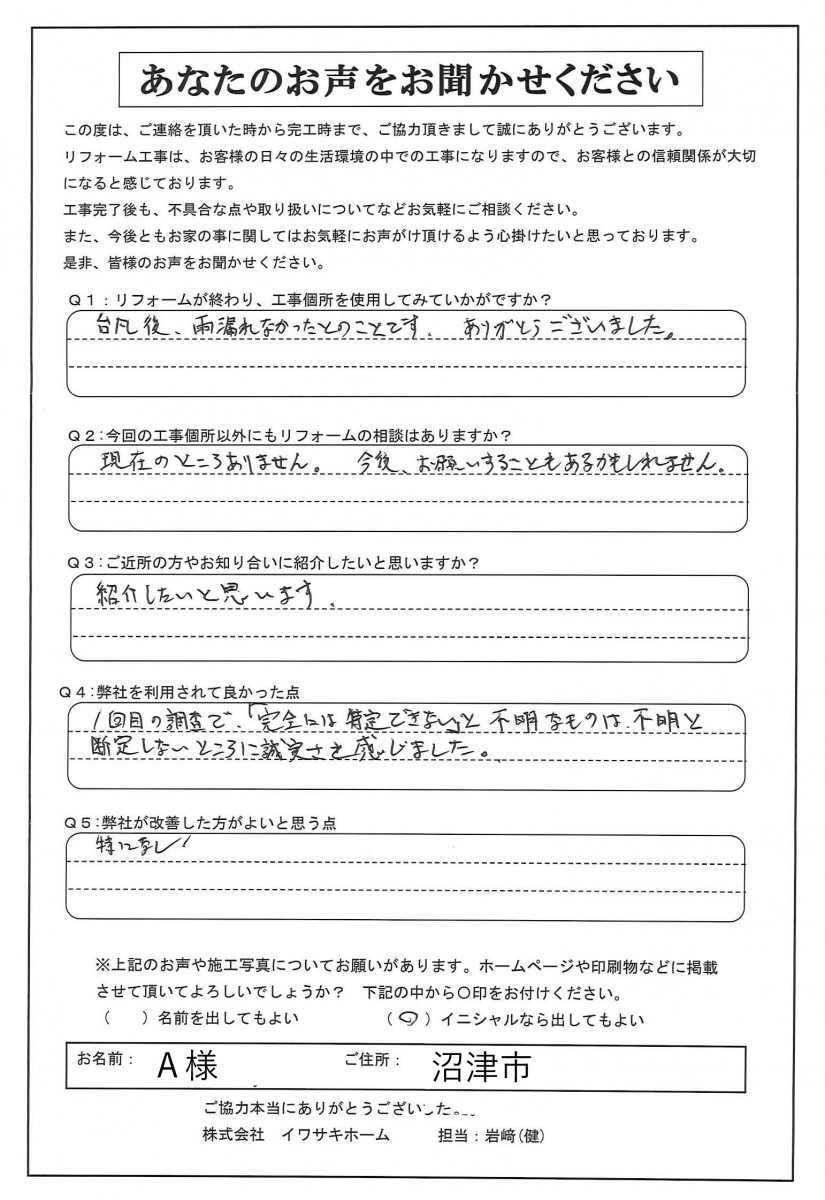 あなたのお声をお聞かせください
この度は、ご連絡を頂いた時から完工時まで、ご協力頂きまして誠にありがとうございます。
リフォーム工事は、お客様の日々の生活環境の中での工事になりますので、お客様との信頼関係が大切
になると感じております。
工事完了後も、不具合な点や取り扱いについてなどお気軽にご相談ください。
また、今後ともお家の事に関してはお気軽にお声がけ頂けるよう心掛けたいと思っております。
是非、皆様のお声をお聞かせください。
Q1：リフォームが終わり、工事個所を使用してみていかがですか？
台風後、雨漏れなかったとのことです。 ありがとうございました。
Q2：今回の工事個所以外にもリフォームの相談はありますか？
現在のところありません。 今後、お願いすることもあるかもしれません。
Q3：ご近所の方やお知り合いに紹介したいと思いますか？
紹介したいと思います。
Q4：弊社を利用されて良かった点
1回目の調査で、「完全には特定できない」と不明なものは、不明と
断定しないところに誠実さを感じました。
Q5：弊社が改善した方がよいと思う点
特になし
※上記のお声や施工写真についてお願いがあります。ホームページや印刷物などに掲載
させて頂いてよろしいでしょうか？ 下記の中から〇印をお付けください。
（ ）名前を出してもよい （〇）イニシャルなら出してもよい
お名前： A様 ご住所： 沼津市
ご協力本当にありがとうござい した。
株式会社 イワサキホーム 担当：岩﨑(健)